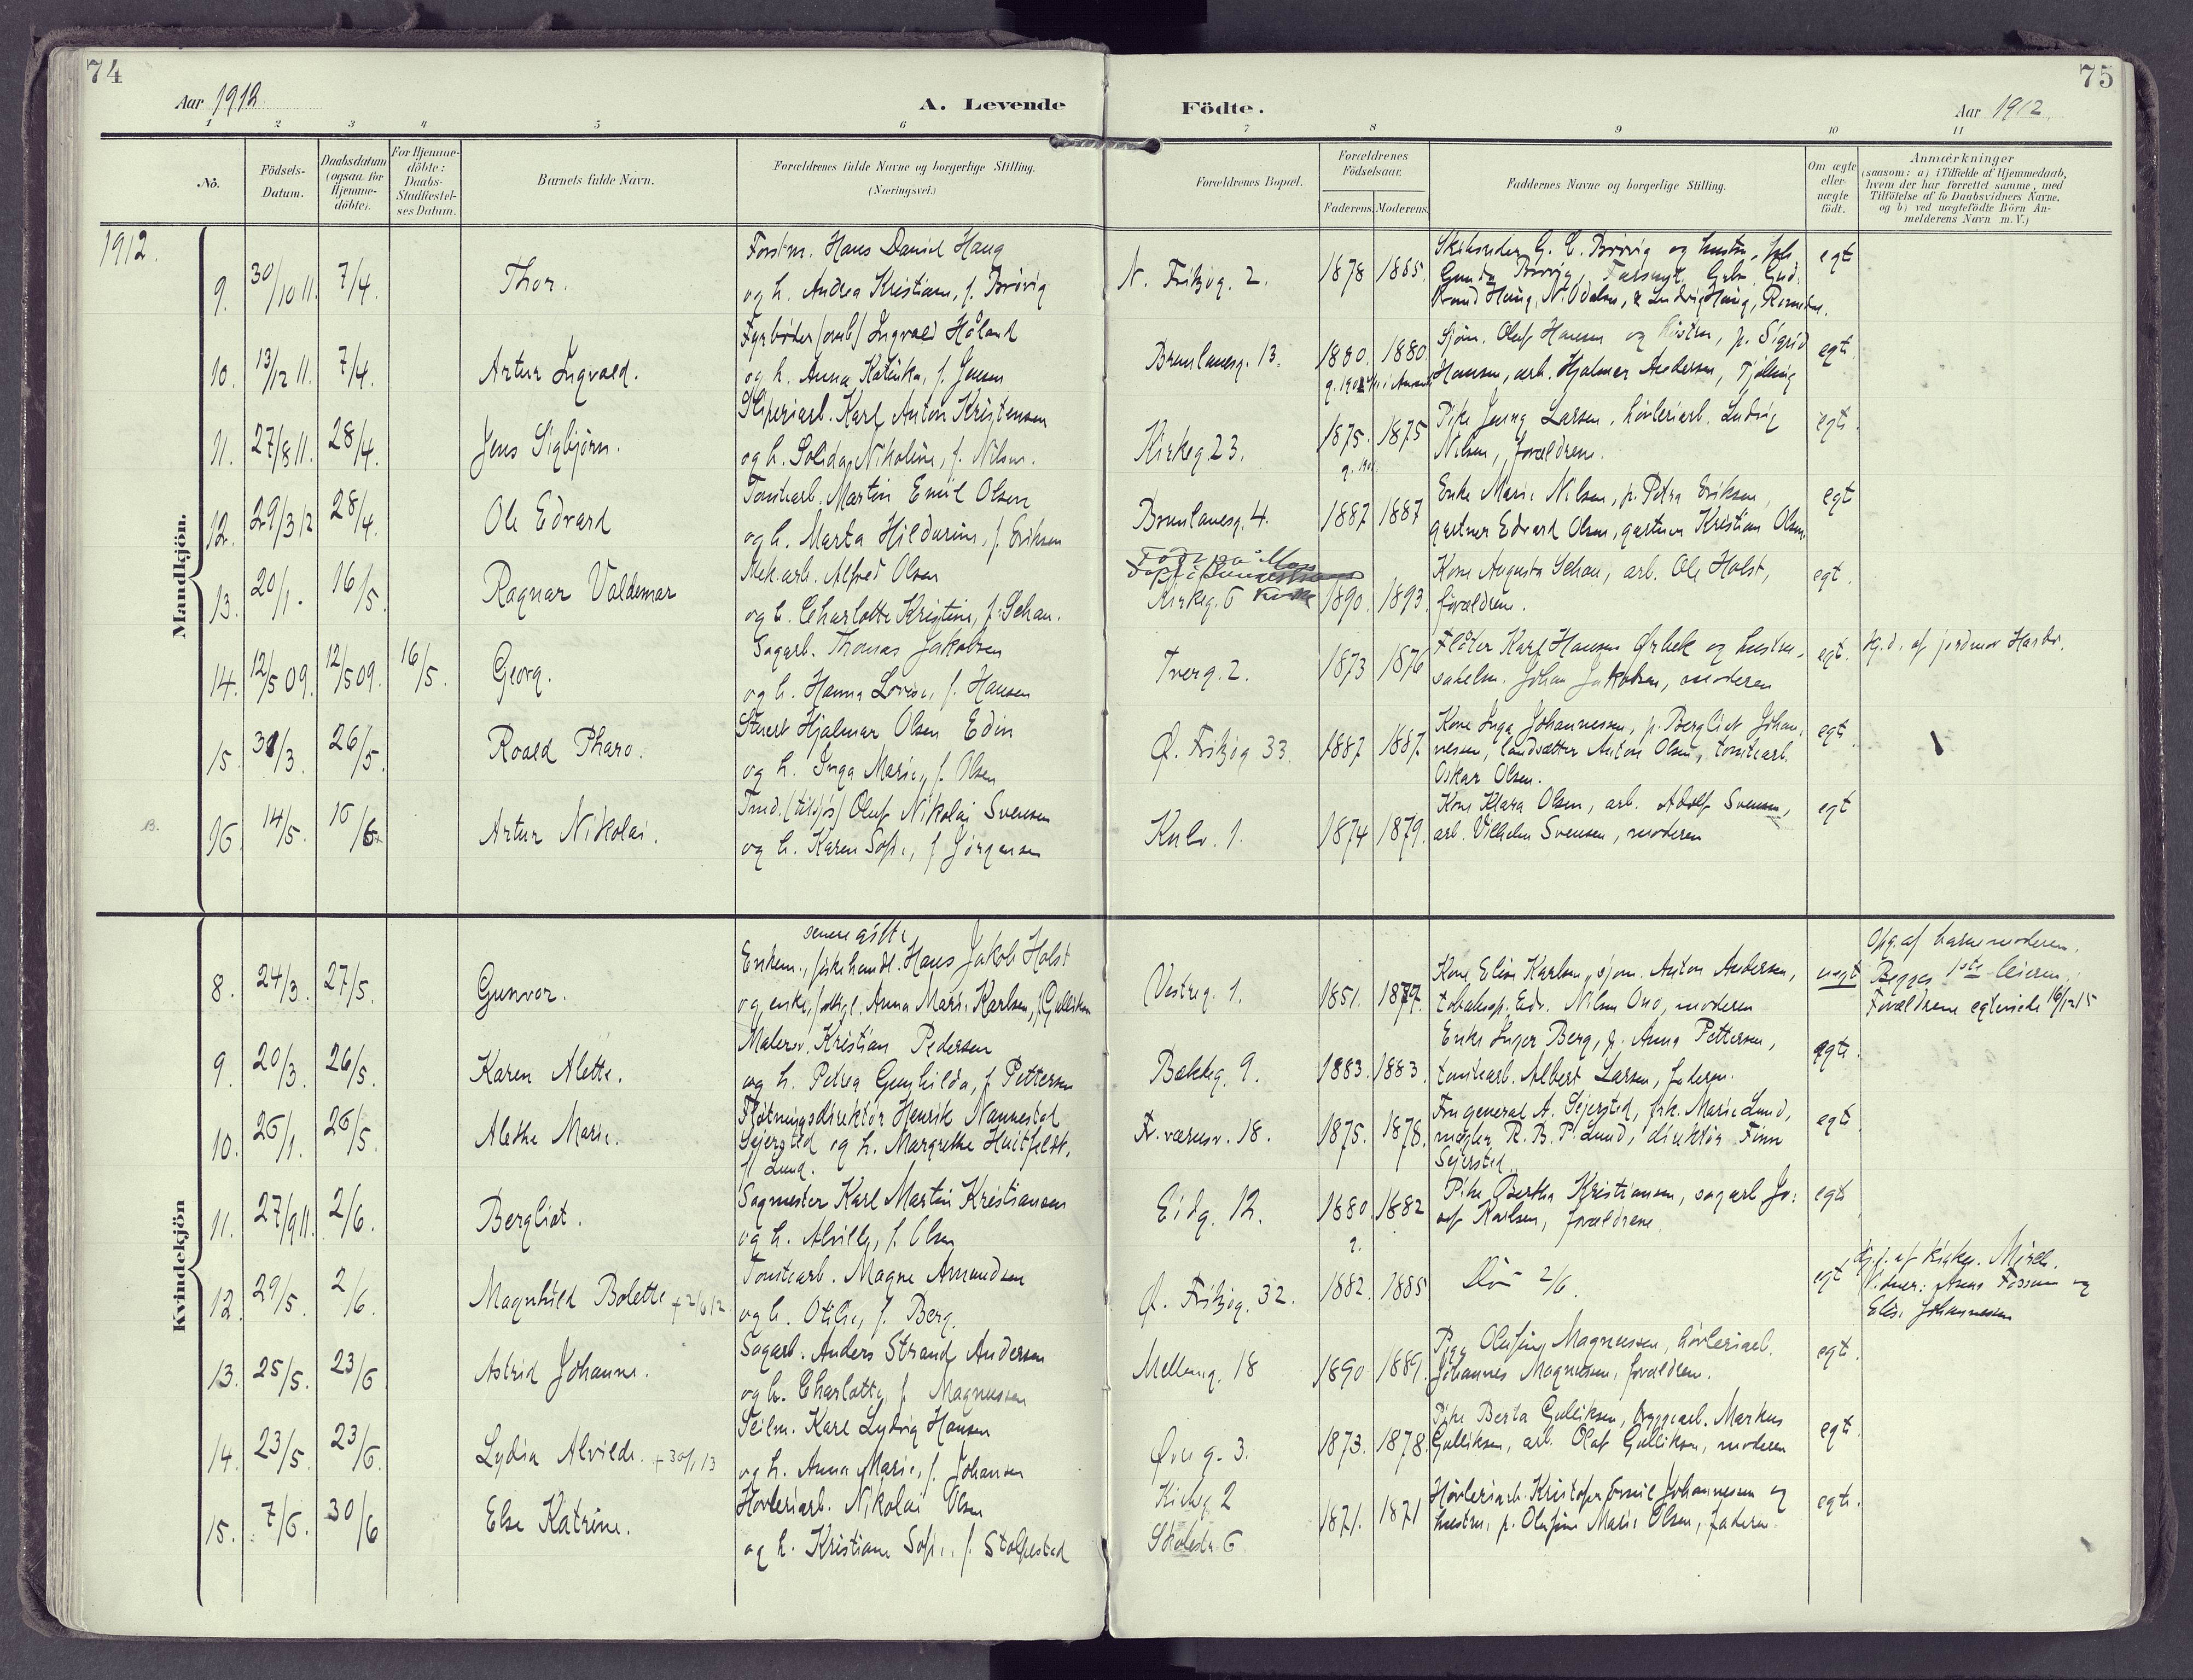 74
75
Aar 1912
A. Levende Födte.
Aar 1912.
1 2 3 4 5 6 7 8 9 10 11
No.
Födsels-
Datum.
Daabsdatum
(ogsaa for
Hjemme-
döbte).
For Hjemme-
döbte:
Daabs-
Stadfæstel-
ses Datum.
Barnets fulde Navn.
Forældrenes fulde Navne og borgerlige Stilling.
(Næringsvei.)
Forældrenes Bopæl.
Forældrenes
Födselsaar.
Faderens. Moderens.
Faddernes Navne og borgerlige Stilling.
Om ægte
eller
uægte
födt.
Anmærkninger
(saasom: a) i Tilfælde af Hjemmedaab,
hvem der har forrettet samme, med
Tilföielse af to Daabsvidners Navne,
og b) ved uægtefödte Börn An-
melderens Navn m. V.)
Mandkjön.
1912.
9. 30/10 11. 7/4. Thor.
Forstm. Hans Daniel Haug
og h. Andrea Kristiane, f. Brövig
N. Fritzøg. 2. 1878 1885.
G. C. Brövig og hustru,
Gunda Brövig,
Haug, N. Odalen, Ludvig Haug, Romedal.
egt
10. 13/12 11. 7/4. Artur Ingvald.
Fyrbøder Ingvald Håland
og h. Anna Katinka, f. Jensen
Brunlanesg. 13. 1880. 1880.
Sjøm. Oluf Hansen og hustru, p. Sigrid
Hansen, arb. Hjalmar Andersen, Tjølling
egte.
11. 27/8 11. 28/4. Jens Sigbjørn.
Sliperiarb. Karl Anton Kristensen
og h. Solida Nikoline, f. Nilsen.
Kirkeg 23. 1875. 1875
Pike Jenny Larsen, høvleriarb. Ludvig
Nilsen, forældrene.
egte.
12. 29/3 12 28/4. Ole Edvard
Tomtearb. Martin Emil Olsen
og h. Marta Hildurine, f. Eriksen
Brunlanesg. 4. 1887 1887
Enke Marie Nilsen, p. Petra Eriksen,
gartner Edvard Olsen, gartner Kristian Olsen.
egt
13. 20/1. 16/5. Ragnar Valdemar
Mek. arb. Alfred Olsen
og h. Charlotte Kristine, f. Schau.
Kirkeg. 6 1890. 1893.
Kone Augusta Schau, arb. Ole Holst,
forældrene.
egt.
14. 12/5 09. 12/5 09. 16/5. Georg.
Sagarb. Thomas Jakobsen
og h. Hanna Lovise, f. Hansen
Tverg. 2. 1873 1876
Fløter Karl Hansen Ørbek og hustru,
Johan Jakobsen, moderen
egt.
Hj. d. af jordmor
15. 31/3. 26/5. Roald Pharo.
Stuert Hjalmar Olsen Edin
og h. Inga Marie, f. Olsen
Ø. Fritzøg 33. 1887 1887.
Kone Inga Johannessen, p. Bergliot Johan-
nessen, Anton Olsen, tomtearb.
Oskar Olsen.
egte.
16. 14/5. 16/6. Artur Nikolai.
Tmd. (tilsjøs) Oluf Nikolai Svensen
og h. Karen Sofie, f. Jørgensen
1. 1874 1879.
Kone Klara Olsen, arb. Adolf Svensen,
arb. Vilhelm Svensen, moderen
egt
Kvindekjön
8. 24/3. 27/5. Gunvor.
senere gifte
Enkem., fiskehandl. Hans Jakob Holst
og enke, Anna Marie Karlsen, f. Gulliksen
Vestreg. 1. 1851. 1877.
Kone Elise Karlsen, sjøm. Anton Andersen,
Edv. Nilsen Ono, moderen
uegt
Opg. af barnemoderen.
Begges 1ste leierm.
Forældrene egteviede 16/12 15
9. 20/3. 26/5. Karen Alette.
Malersv. Kristian Pedersen
og h. Petrea Gunhilda, f. Pettersen
Bakkeg. 9. 1883. 1883.
Enke Inger Berg, p. Anna Pettersen,
tomtearb. Albert Larsen, faderen.
egte.
10. 26/1. 26/5. Alethe Marie.
Fløtningsdirektør Henrik Nannestad
Sejersted og h. Margrethe Huitfeldt,
f. Lund.
18. 1875. 1878.
Fru general A. Sejersted, frk. Marie Lund,
megler R. B. P. Lund, direktør Finn
Sejersted.
egte.
11. 27/9 11. 2/6. Bergliot.
Sagmester Karl Martin Kristiansen
og h. Alvilly, f. Olsen
Eidg. 12. 1880. 1882
Pike Bertha Kristiansen, sagarb. Jo-
sef Karlsen, forældrene.
egte
12. 29/5. 2/6. Magnhild Bolette + 2/6 12.
Tomtearb. Magne Amundsen
og h. Otilie, f. Berg.
Ø. Fritzøg. 32. 1882. 1885
Død 2/6.
egt
Hj. d. af
Vidner: Fossum og
Elise Johannessen
13. 25/5. 23/6 Astrid Johanne.
Sagarb. Anders Strand Andersen
og h. Charlotte, f. Magnussen
Mellemg. 18 1890 1889.
Olufine Magnussen, høvleriarb.
Johannes Magnussen, forældrene.
egte.
14. 23/5. 23/6. Lydia Alvilde. + 30/1 13
Seilm. Karl Ludvig Hansen
og h. Anna Marie, f. Johansen
Øvreg. 3. 1873. 1878.
Pike Berta Gulliksen, byggearb. Markus
Gulliksen, arb. Olaf Gulliksen, moderen
egte.
15. 7/6. 30/6 Else Katrine.
Høvleriarb. Nikolai Olsen
og h. Kristiane Sofie, f. Stolpestad
Kirkeg 2
6
1871. 1871
Høvleriarb. Kristofer Emil Johannessen og
hustru, p. Olufine Marie Olsen, faderen.
egte.